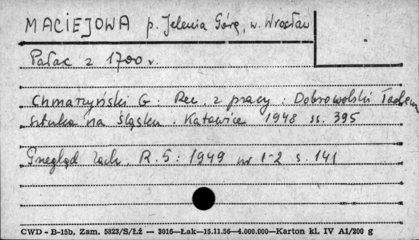 MACIEJOWA p. Jelenia Góra, w. Wrocław
Pałac z 1700 r.
Chmarzyński G. Rec. z pracy: Dobrowolski Tadeusz
Sztuka na Śląsku. Katowice 1948 ss. 395
Przegląd Zach. R. 5: 1949 nr 1-2 s. 141
CWD - B-15b. Zam. 5823/S/ŁŻ — 3016—Łak—15.11.56—4.000.000—Karton kl. IV A1/200 g